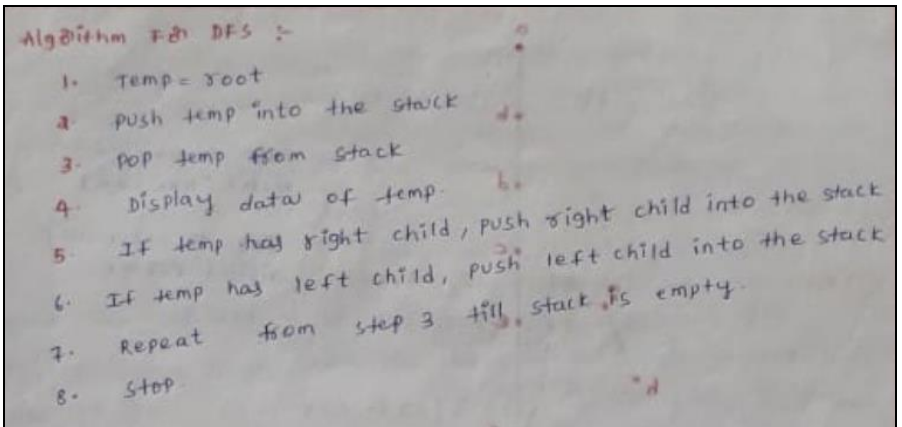 Algorithm For DFS :-
1. Temp = root
2. push temp into the stack
3. POP temp from stack
4. Display data of temp.
5. If temp has right child, push right child into the stack
6. If temp has left child, push left child into the stack
7. Repeat from step 3 till stack is empty.
8. Stop.